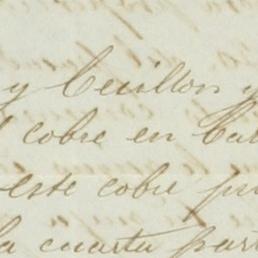 y Cecillon y
cobre en
este cobre
la cuarta part